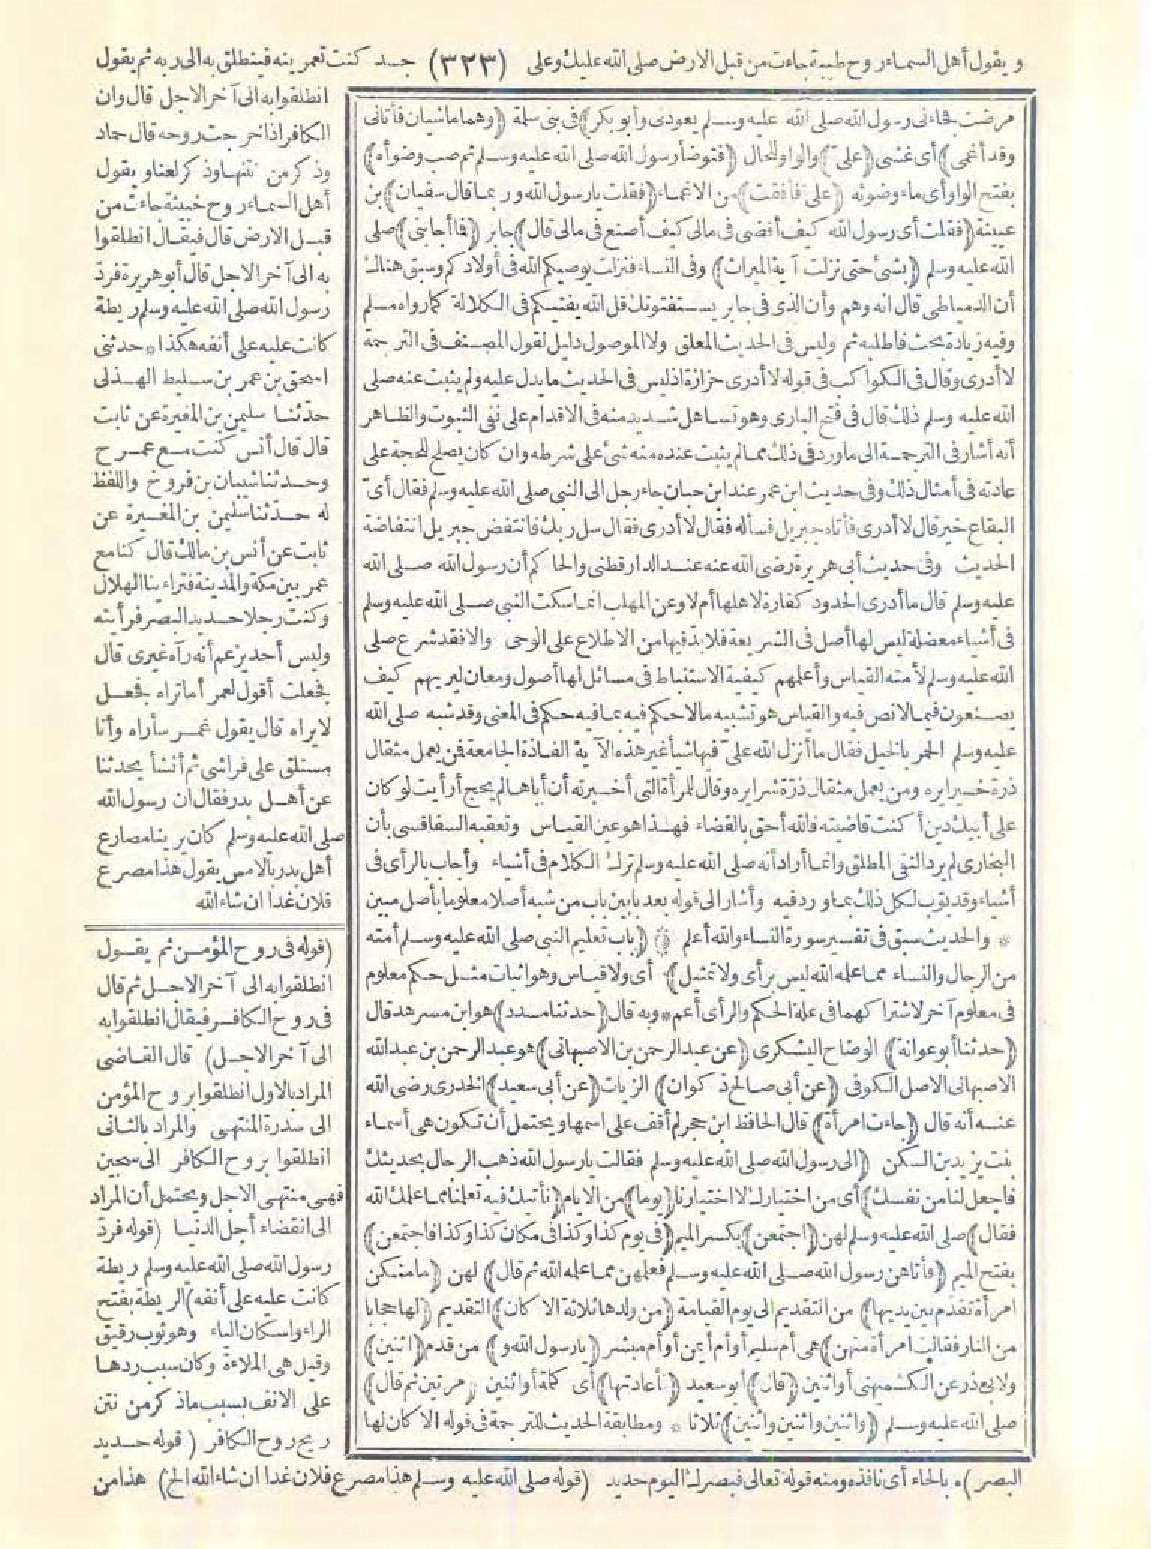 ويقول أهل السماء روح طيبة جاءت من قبل الارض صلى الله عليك وعلى (٣٢٣) جسد كنت تعمرينه فينطلق به الى ربه ثم يقول
مرضت فجاءنى رسول الله صلى الله عليه وسلم يعودنى وأبو بكر) فى بنى سلمة (وهما ماشيان فأتانى
وقد أغمى) أى غشى (علىّ) والواو للحال (فتوضأ رسول الله صلى الله عليه وسلم ثم صب وضوأه)
بفتح الواو أى ماء وضوئه (علىّ فأفقت) من الاغماء (فقلت يارسول الله وربما قال سفيان) بن
عيينة (فقلت أى رسول الله كيف أقضى فى مالى كيف أصنع فى مالى قال) جابر (فما أجابنى) صلى
الله عليه وسلم (بشئ حتى نزلت آية الميراث) وفى النساء فنزلت يوصيكم الله فى أولادكم وسبق هناك
أن الدمياطى قال انه وهم وأن الذى فى جابر يستفتونك قل الله يفتيكم فى الكلالة كما رواه مسلم
وفيه زيادة بحث فاطلبه ثم وليس فى الحديث المعلق ولا الموصول دليل لقول المصنف فى الترجمة
لا أدرى وقال فى الكواكب فى قوله لا أدرى حزازة اذ ليس فى الحديث ما يدل عليه ولم يثبت عنه صلى
الله عليه وسلم ذلك قال فى فتح البارى وهو تساهل شديد منه فى الاقدام على نفى الثبوت والظاهر
أنه أشار فى الترجمة الى ما ورد فى ذلك مما لم يثبت عنده منه شئ على شرطه وان كان يصلح للحجة على
عادته فى أمثال ذلك وفى حديث ابن عمر عند ابن حبان جاء رجل الى النبى صلى الله عليه وسلم فقال أىّ
البقاع خير قال لا أدرى فأتاه جبريل فسأله فقال لا أدرى فقال سل ربك فانتفض جبريل انتفاضة
الحديث وفى حديث أبى هريرة رضى الله عنه عند الدارقطنى والحاكم أن رسول الله صلى الله
عليه وسلم قال ما أدرى الحدود كفارة لاهلها أم لا وعن المهلب انما سكت النبى صلى الله عليه وسلم
فى أشياء معضلة ليس لها أصل فى الشريعة فلا بدّ فيها من الاطلاع على الوحى والا فقد شرع صلى
الله عليه وسلم لأمته القياس وأعلمهم كيفية الاستنباط فى مسائل لها أصول ومعان ليريهم كيف
يصنعون فيما لا نص فيه والقياس هو تشبيه ما لا حكم فيه بما فيه حكم فى المعنى وقد شبه صلى الله
عليه وسلم الحمر بالخيل فقال ما أنزل الله علىّ فيها شيأ غير هذه الآية الفاذة الجامعة فمن يعمل مثقال
ذرة خيرا يره ومن يعمل مثقال ذرة شرا يره وقال للمرأة التى أخبرته أن أباها لم يحج أرأيت لو كان
على أبيك دين أكنت قاضيته فالله أحق بالقضاء فهذا هو عين القياس وتعقبه السفاقسى بأن
البخارى لم يرد النفى المطلق وانما أراد أنه صلى الله عليه وسلم ترك الكلام فى أشياء وأجاب بالرأى فى
أشياء وقد بوّب لكل ذلك بما ورد فيه وأشار الى قوله بعد بابين باب من شبه أصلا معلوما بأصل مبين
* والحديث سبق فى تفسير سورة النساء والله أعلم (باب تعليم النبى صلى الله عليه وسلم أمته
من الرجال والنساء مما علمه الله ليس برأى ولا تمثيل) أى ولا قياس وهو اثبات مثل حكم معلوم
فى معلوم آخر لاشتراكهما فى علة الحكم والرأى أعم * وبه قال (حدثنا مسدد) هو ابن مسرهد قال
(حدثنا أبو عوانة) الوضاح اليشكرى (عن عبد الرحمن بن الاصبهانى) هو عبد الرحمن بن عبد الله
الاصبهانى الاصل الكوفى (عن أبى صالح ذكوان) الزيات (عن أبى سعيد) الخدرى رضى الله
عنه أنه قال (جاءت امرأة) قال الحافظ ابن حجر لم أقف على اسمها ويحتمل أن تكون هى أسماء
بنت يزيد بن السكن (الى رسول الله صلى الله عليه وسلم فقالت يارسول الله ذهب الرجال بحديثك
فاجعل لنا من نفسك) أى من اختيارك لا اختيارنا (يوما) من الايام (نأتيك فيه تعلمنا مما علمك الله
فقال) صلى الله عليه وسلم لهن (اجتمعن) بكسر الميم (فى يوم كذا وكذا فى مكان كذا وكذا فاجتمعن)
بفتح الميم (فأتاهن رسول الله صلى الله عليه وسلم فعلمهن مما علمه الله ثم قال) لهن (ما منكن
امرأة تقدم بين يديها) من التقديم الى يوم القيامة (من ولدها ثلاثة الا كان) التقديم (لها حجابا
من النار فقالت امرأة منهن) هى أم سليم أو أم أيمن أو أم مبشر (يارسول الله و) من قدم (اثنين)
ولابى ذر عن الكشميهنى أو اثنين (قال) أبو سعيد (فأعادتها) أى كلمة أو اثنين (مرتين ثم قال)
صلى الله عليه وسلم (واثنين واثنين واثنين) ثلاثا * ومطابقة الحديث للترجمة فى قوله الا كان لها
انطلقوا به الى آخر الاجل قال وان
الكافر اذا خرجت روحه قال حماد
وذكر من نتنها وذكر لعنا ويقول
أهل السماء روح خبيثة جاءت من
قبل الارض قال فيقال انطلقوا
به الى آخر الاجل قال أبو هريرة فردّ
رسول الله صلى الله عليه وسلم ريطة
كانت عليه على أنفه هكذا * حدثنى
اسحق بن عمر بن سليط الهذلى
حدّثنا سليمن بن المغيرة عن ثابت
قال قال أنس كنت مع عمر ح
وحدثنا شيبان بن فروخ واللفظ
له حدّثنا سليمن بن المغيرة عن
ثابت عن أنس بن مالك قال كنا مع
عمر بين مكة والمدينة فتراءينا الهلال
وكنت رجلا حديد البصر فرأيته
وليس أحد يزعم أنه رآه غيرى قال
فجعلت أقول لعمر أما تراه فجعل
لا يراه قال يقول عمر سأراه وأنا
مستلق على فراشى ثم أنشأ يحدثنا
عن أهل بدر فقال ان رسول الله
صلى الله عليه وسلم كان يرينا مصارع
أهل بدر بالامس يقول هذا مصرع
فلان غدا ان شاء الله
(قوله فى روح المؤمن ثم يقول
انطلقوا به الى آخر الاجل ثم قال
فى روح الكافر فيقال انطلقوا به
الى آخر الاجل) قال القاضى
المراد بالاول انطلقوا بروح المؤمن
الى سدرة المنتهى والمراد بالثانى
انطلقوا بروح الكافر الى سجين
فهى منتهى الاجل ويحتمل أن المراد
الى انقضاء أجل الدنيا (قوله فردّ
رسول الله صلى الله عليه وسلم ريطة
كانت عليه على أنفه) الريطة بفتح
الراء واسكان الياء وهو ثوب رقيق
وقيل هى الملاءة وكان سبب ردها
على الانف بسبب ما ذكر من نتن
ريح روح الكافر (قوله حديد
البصر) بالحاء أى نافذه ومنه قوله تعالى فبصرك اليوم حديد (قوله صلى الله عليه وسلم هذا مصرع فلان غدا ان شاء الله الخ) هذا من